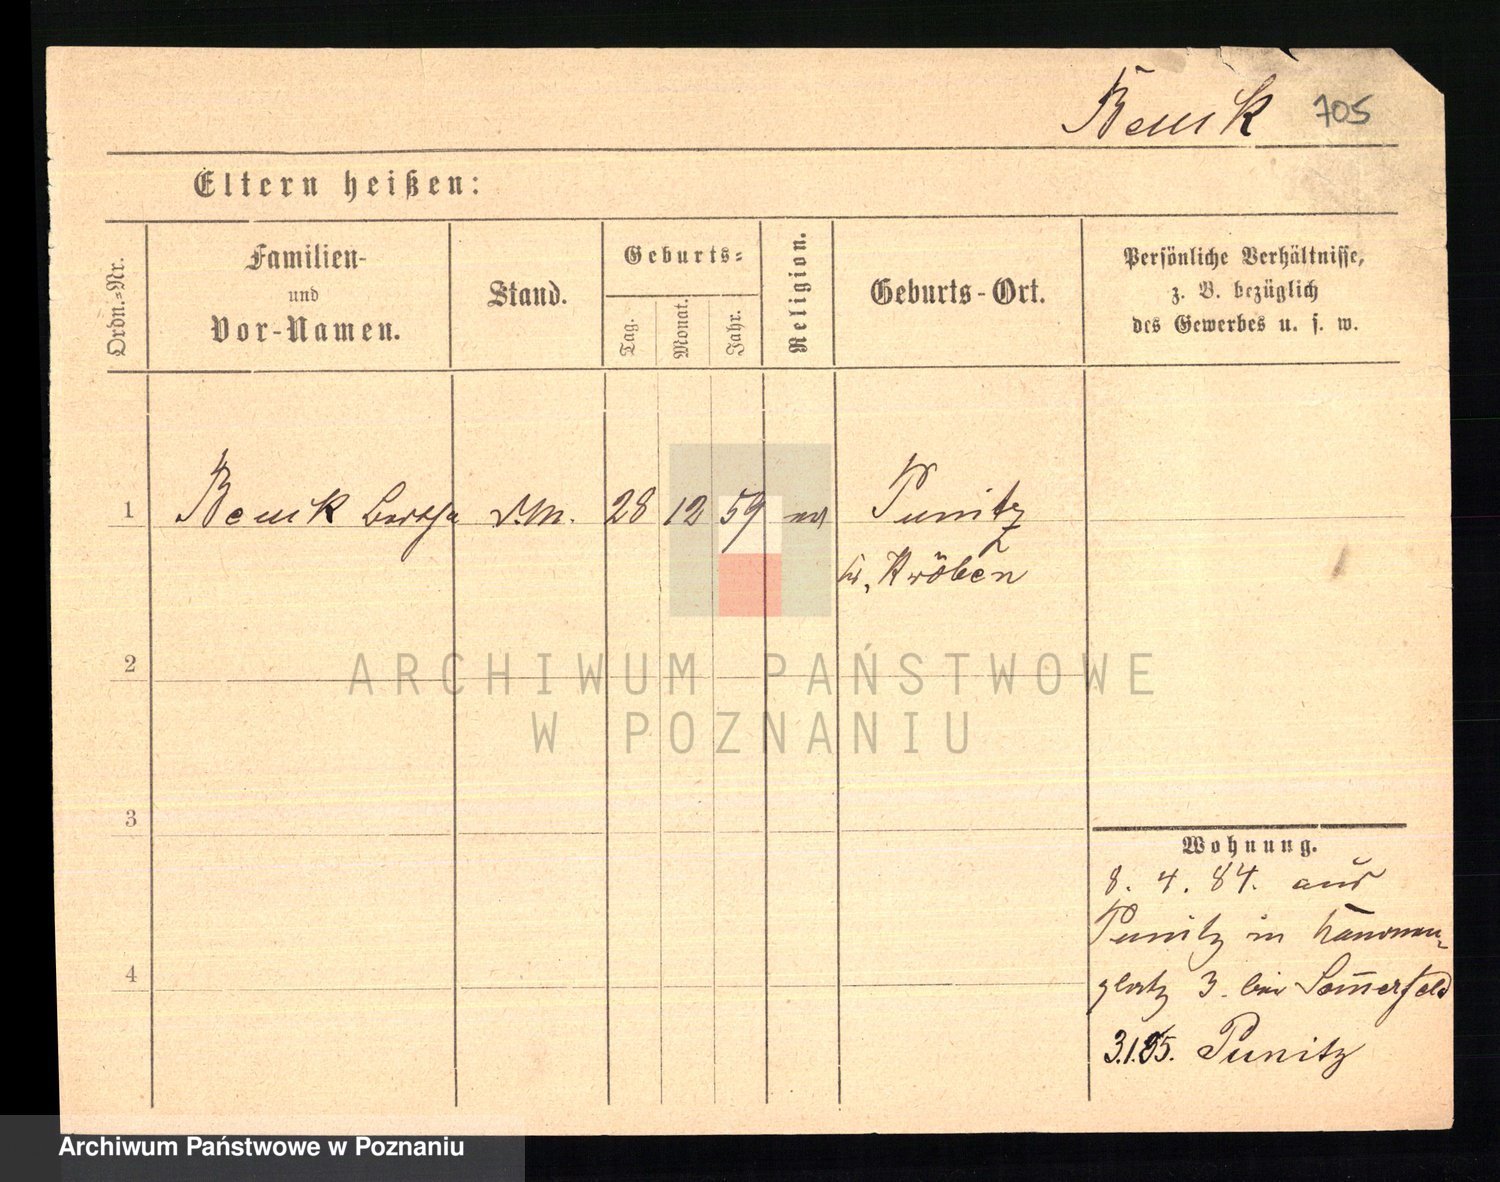 Benik 705
Eltern heißen:
Ordn.-Nr.
Familien-
und
Vor-Namen.
Stand.
Geburts-
Tag.
Monat.
Jahr.
Religion.
Geburts-Ort.
Persönliche Verhältnisse,
z. B. bezüglich
des Gewerbes u. s. w.
1 Benik Bertha d.M. 28 12 59 Punitz
Kr. Kröben
2
ARCHIWUM PAŃSTWOWE
W POZNANIU
3
Wohnung.
8. 4. 84. aus
Punitz in Kanonen-
4
platz 3. bei Som̄erfeld
3.1.85. Punitz
Archiwum Państwowe w Poznaniu